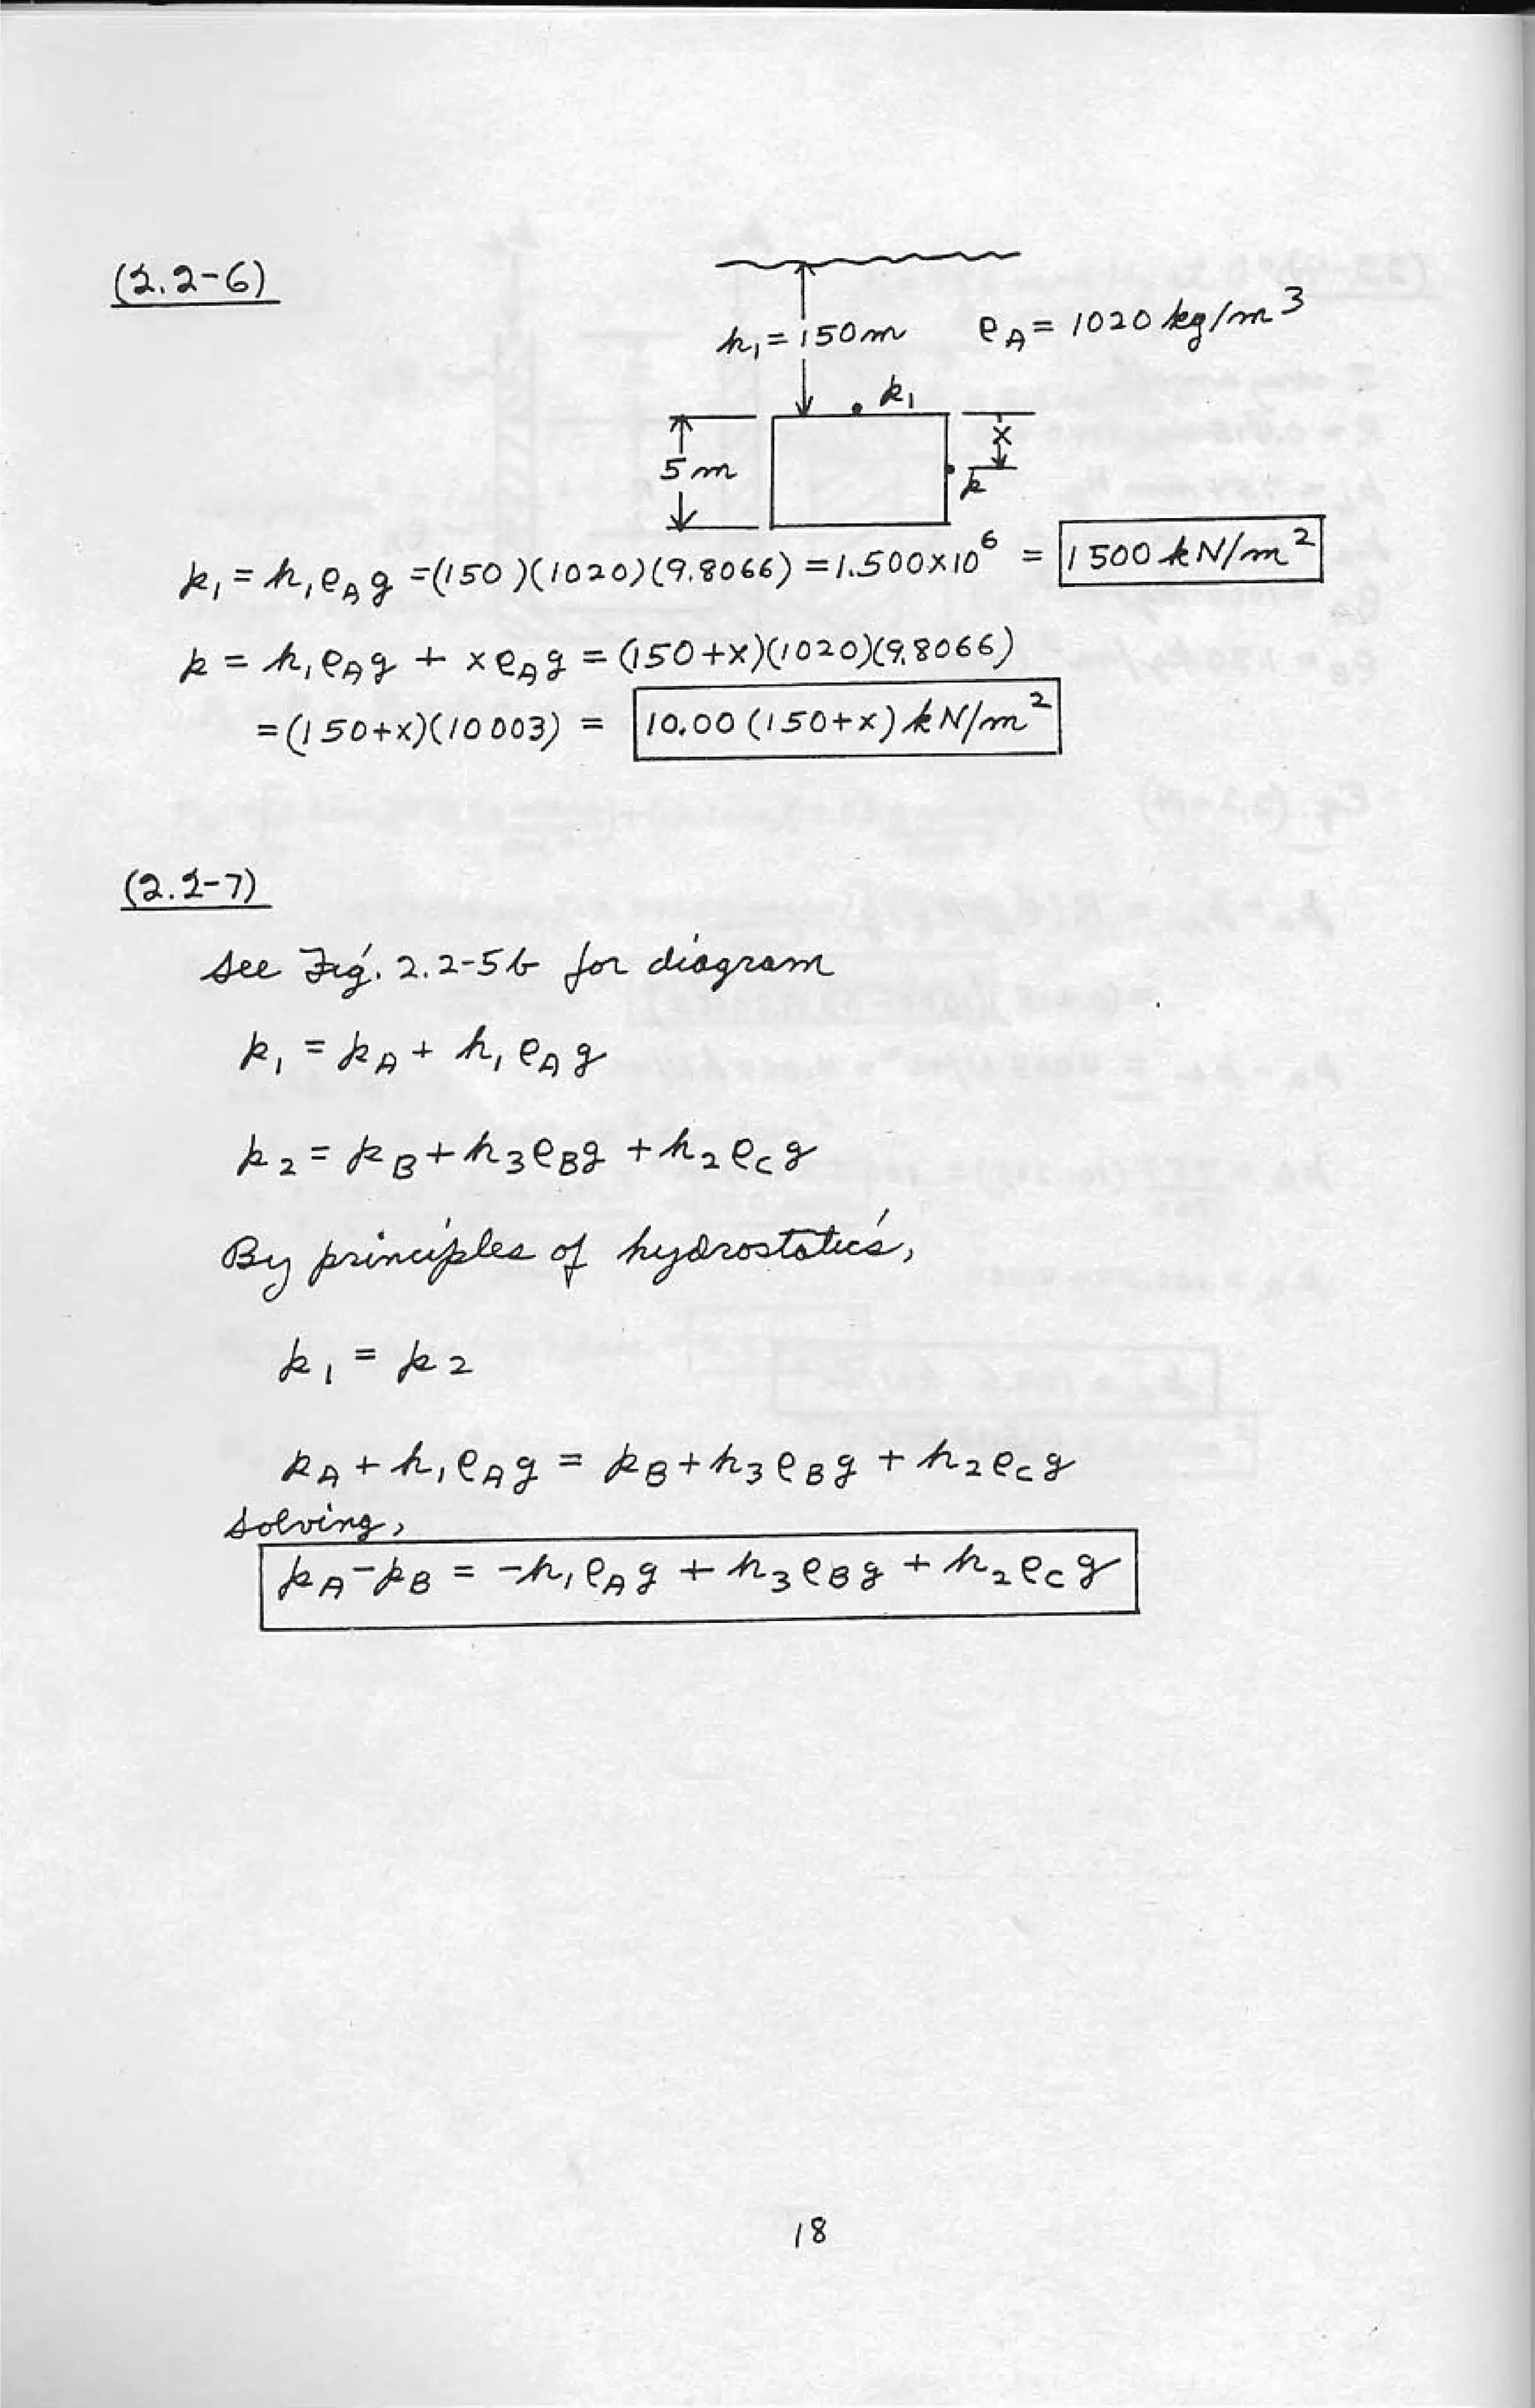 (2.2-6)
h₁ = 150 m ρ_A = 1020 kg/m³
p₁
x
5 m
p
p₁ = h₁ρ_A g = (150)(1020)(9.8066) = 1.500×10⁶ = 1500 kN/m²
p = h₁ρ_A g + xρ_A g = (150+x)(1020)(9.8066)
= (150+x)(10003) = 10.00 (150+x) kN/m²
(2.2-7)
See Fig. 2.2-5b for diagram
p₁ = p_A + h₁ρ_A g
p₂ = p_B + h₃ρ_B g + h₂ρ_C g
By principles of hydrostatics,
p₁ = p₂
p_A + h₁ρ_A g = p_B + h₃ρ_B g + h₂ρ_C g
Solving,
p_A - p_B = -h₁ρ_A g + h₃ρ_B g + h₂ρ_C g
18